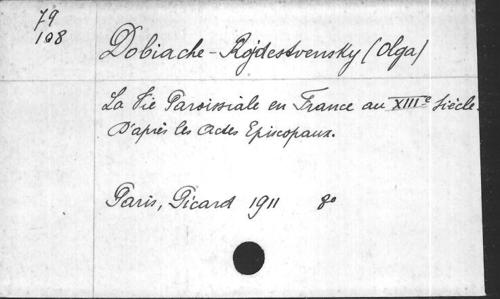 79
108
Dobiache-Rojdestvensky (Olga)
La Vie Paroissiale en France au XIIIe Siècle.
D'après les Actes Episcopaux.
Paris, Picard 1911 8o